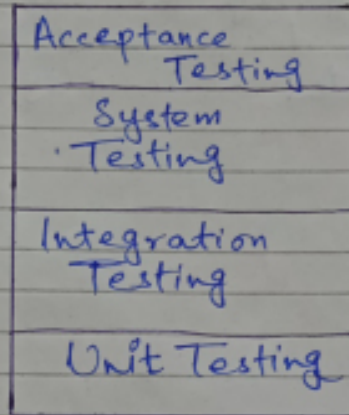 Acceptance
Testing
System
Testing
Integration
Testing
Unit Testing